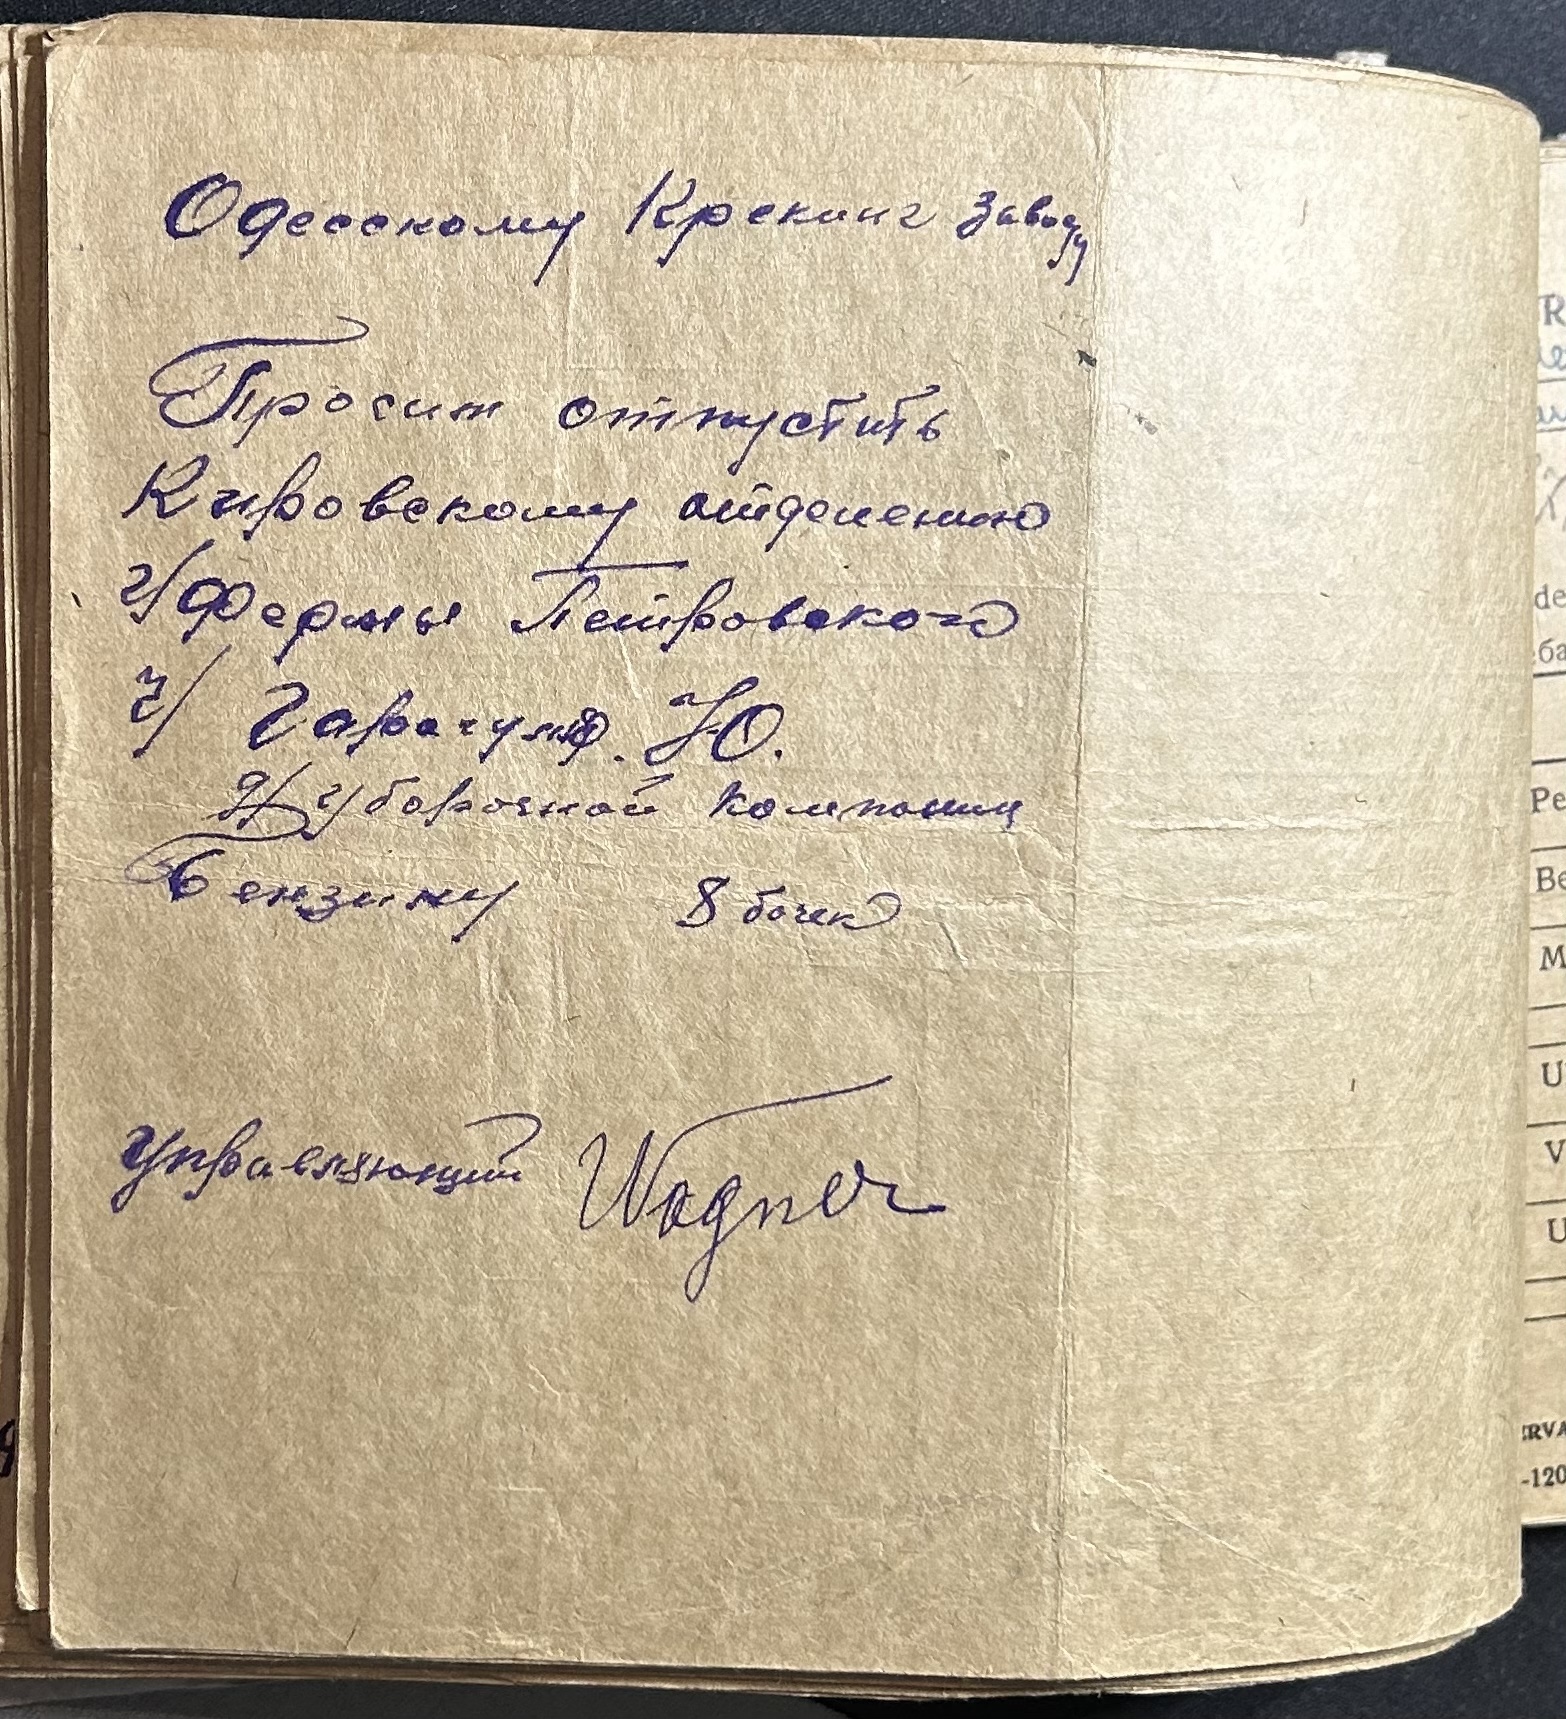 Одесскому Крекинг заводу
Просим отпустить
Кировскому отделению
г/фермы Петровского
ч/ Гарагуля. Ю.
д/уборочной компании
Бензину 8 бочек
Управляющий Wagner
R
de
ба
Pe
Be
M
U
V
U
ERVA
-120